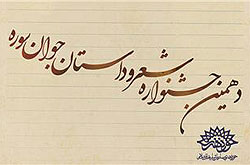 دهمین جشنواره شعر و داستان جوان سوره